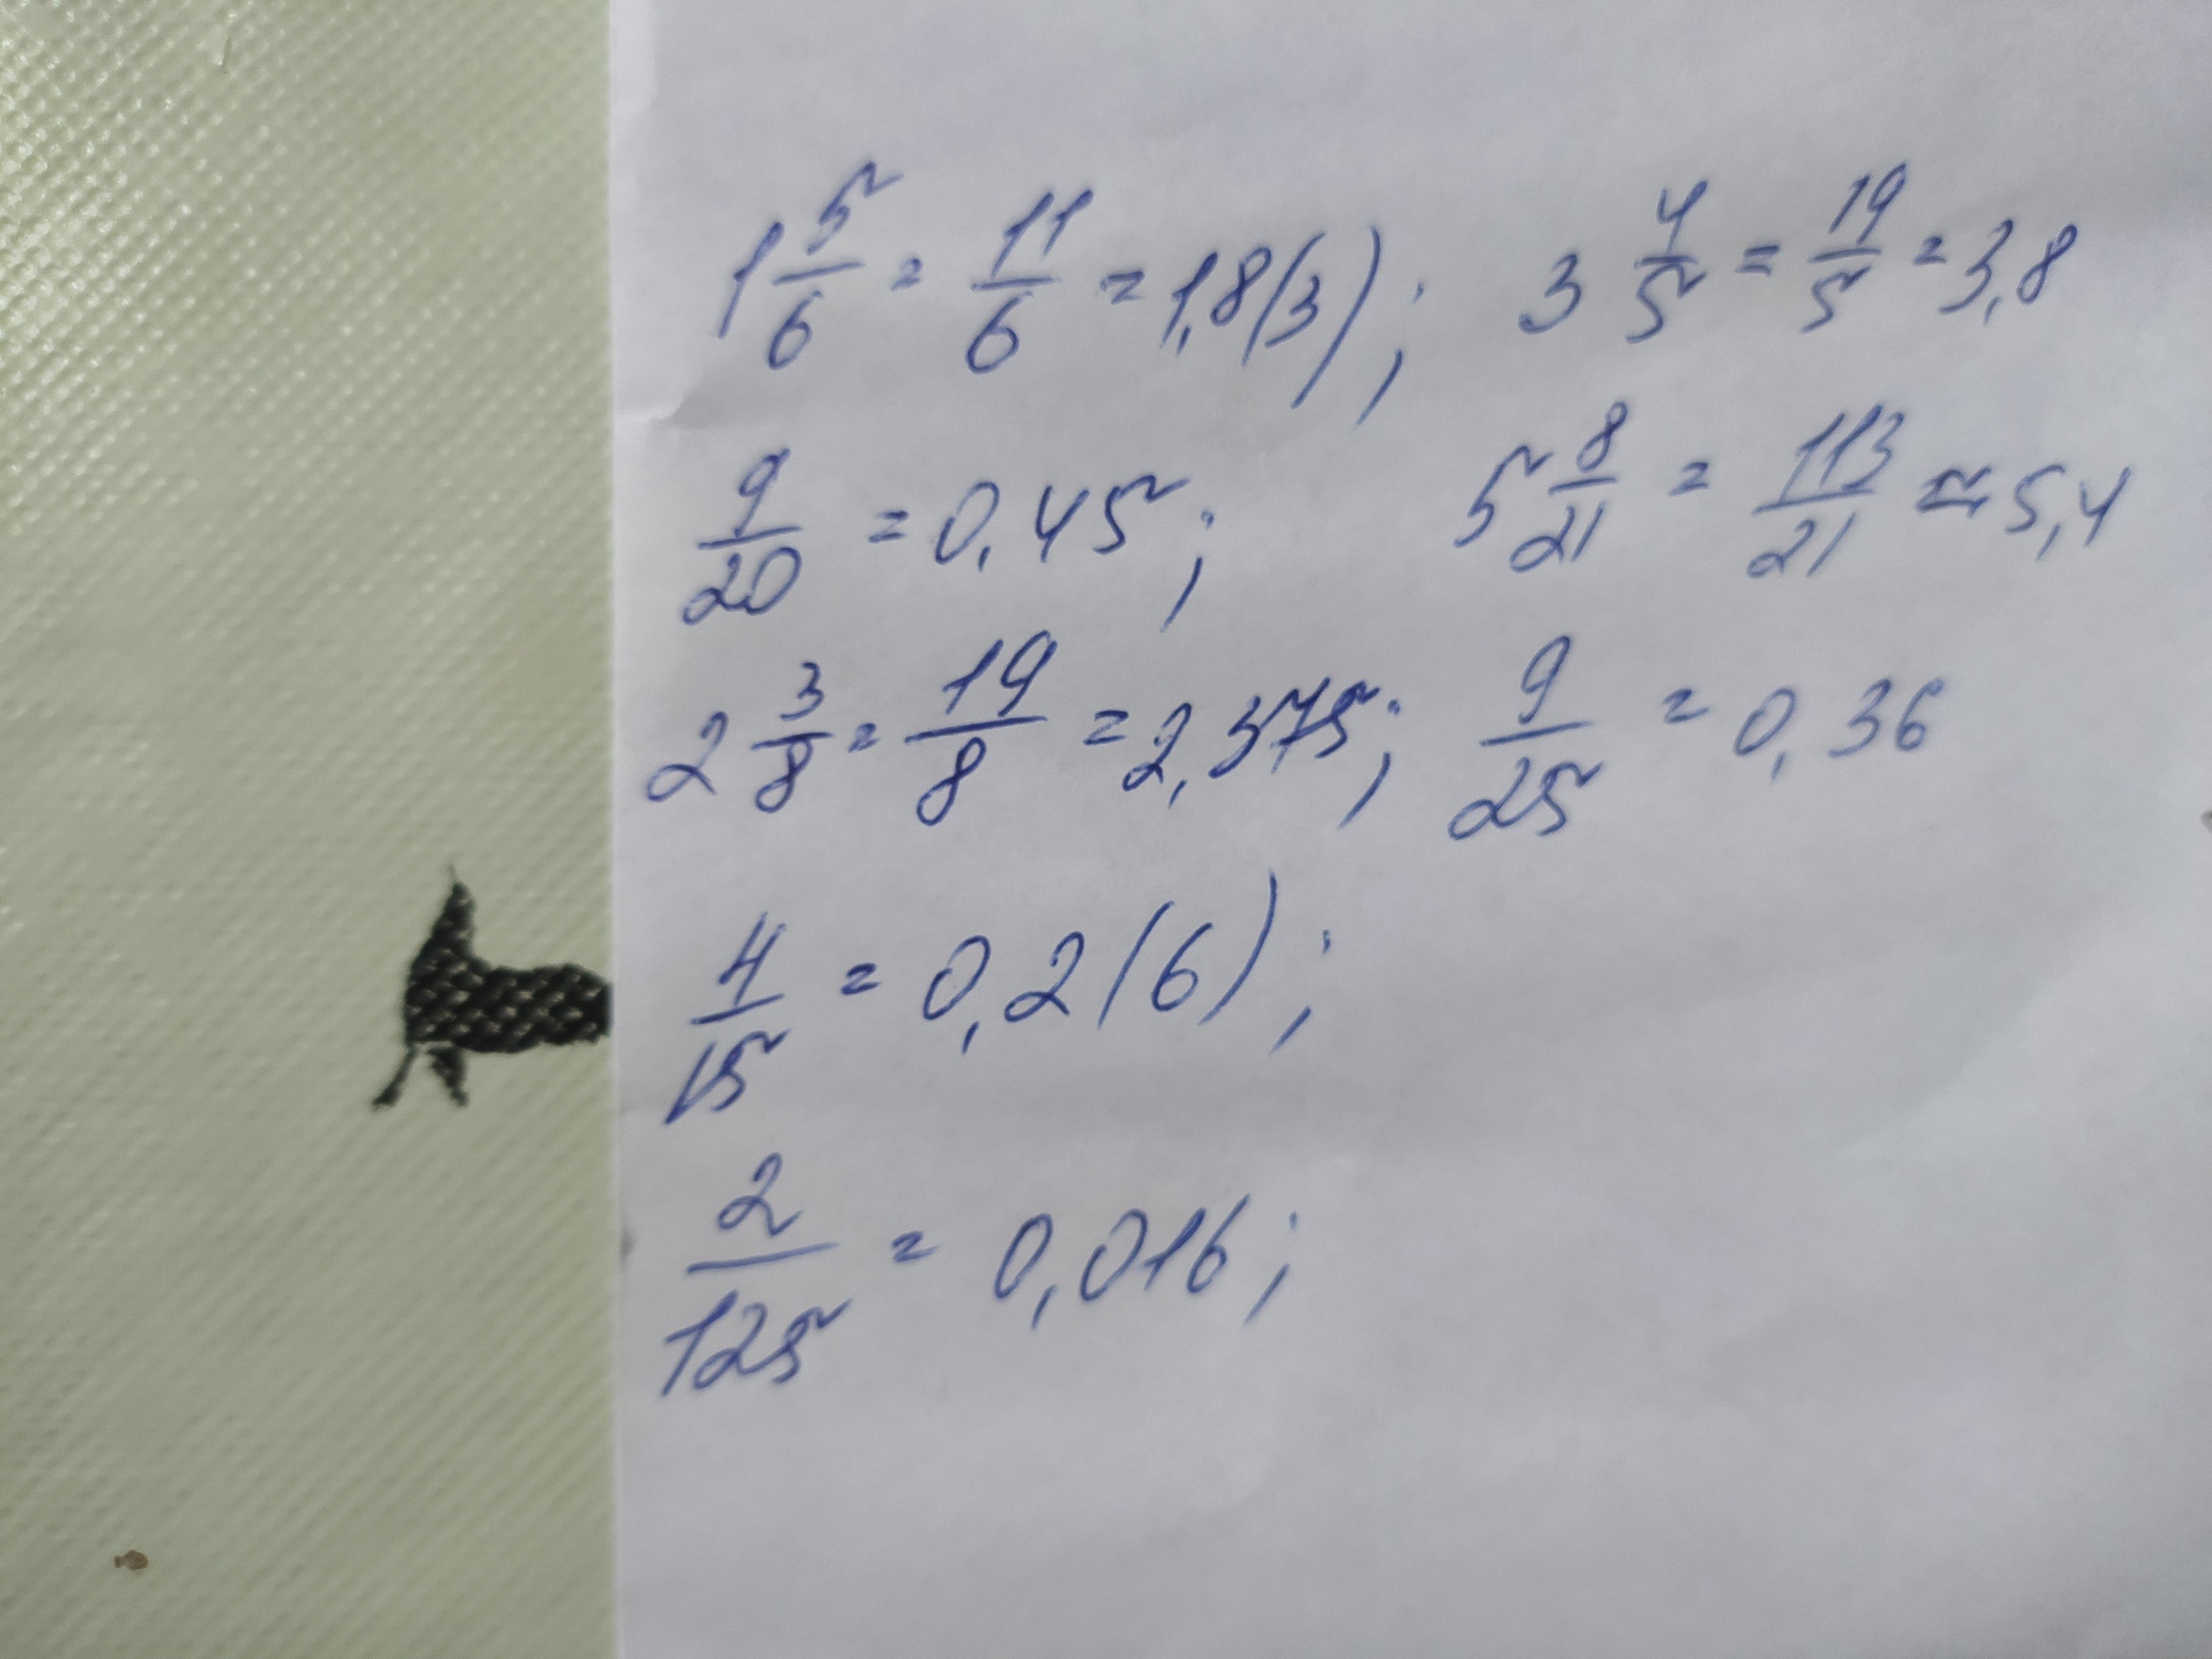 1 5/6 = 11/6 = 1,8(3); 3 4/5 = 19/5 = 3,8
9/20 = 0,45; 5 8/21 = 113/21 ≈ 5,4
2 3/8 = 19/8 = 2,375; 9/25 = 0,36
4/15 = 0,2(6);
2/125 = 0,016;